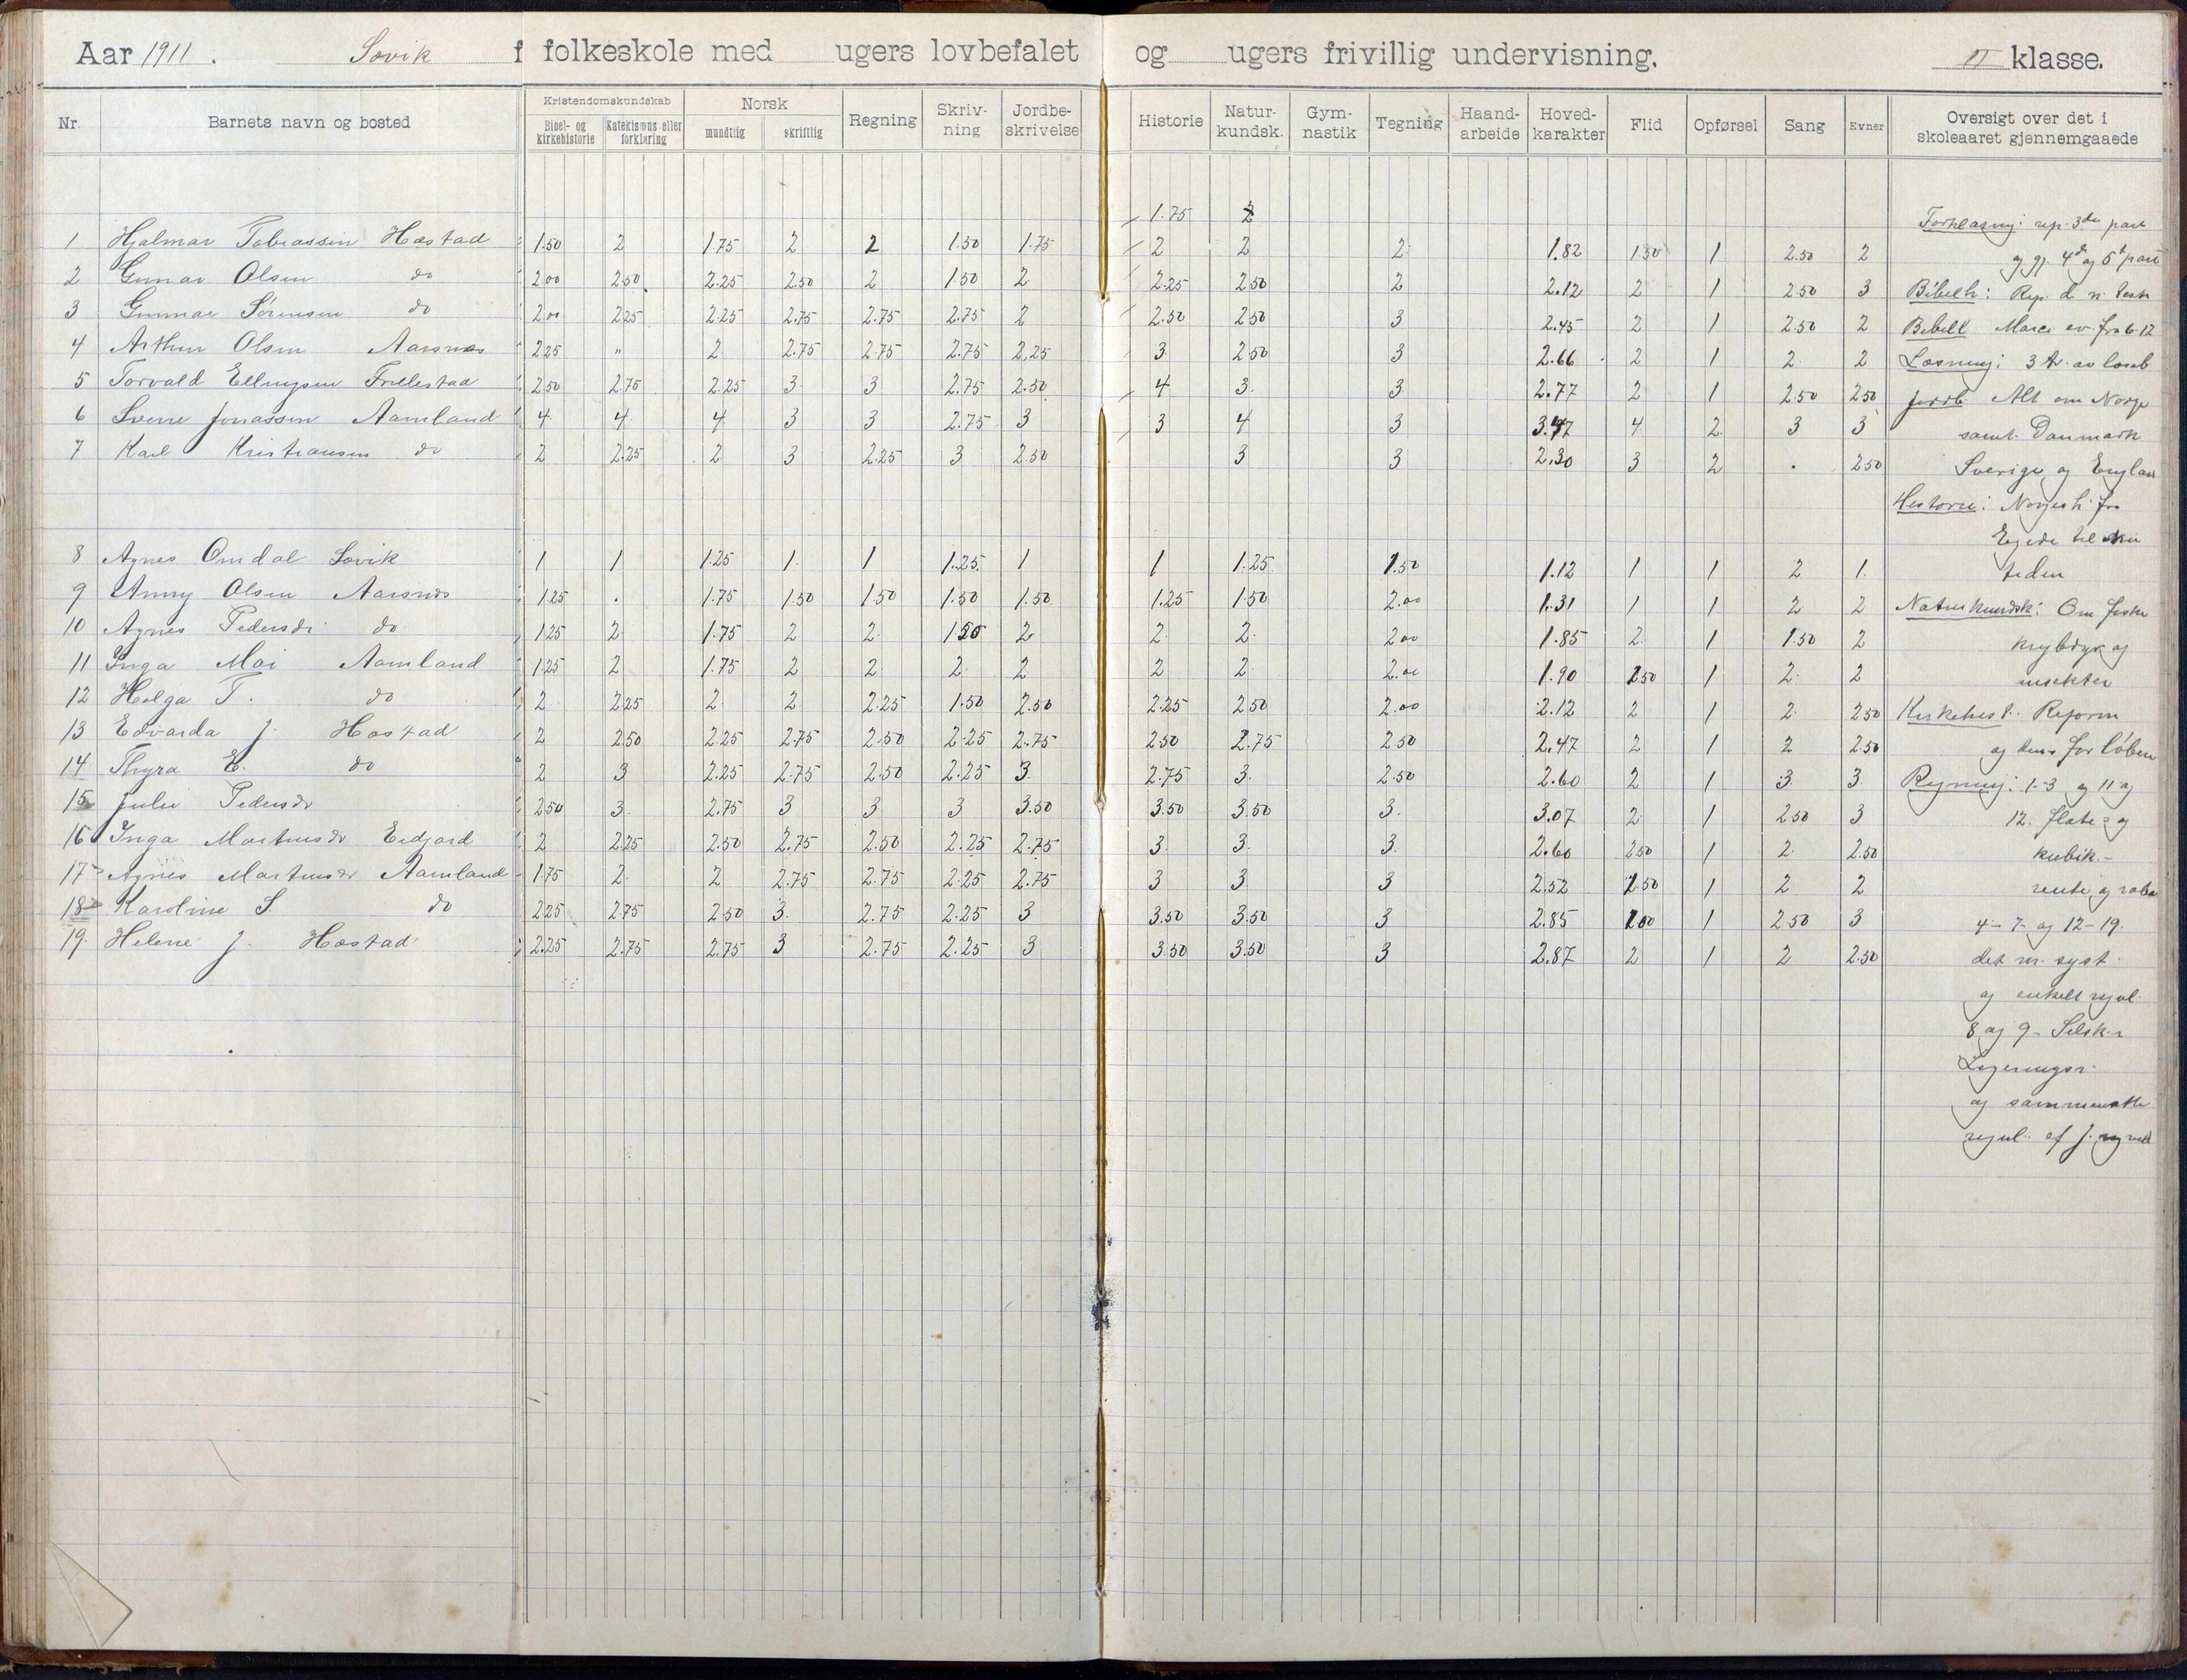 Aar 1911. Søvik folkeskole med ugers lovbefalet og ugers frivillig undervisning. II klasse.
Nr. Barnets navn og bosted Kristendomskundskab Bibel- og kirkehistorie Katekismus eller forklaring Norsk mundtlig skriftlig Regning Skriv-ning Jordbe-skrivelse Historie Natur-kundsk. Gym-nastik Tegning Haand-arbeide Hoved-karakter Flid Opførsel Sang Evner Oversigt over det i skoleaaret gjennemgaaede
1.75 2
1 Hjalmar Tobiassen Hæstad 1.50 2 1.75 2 2 1.50 1.75 2 2 2 1.82 1.50 1 2.50 2
2 Gunnar Olsen do 2.00 2.50 2.25 2.50 2 1.50 2 2.25 2.50 2 2.12 2 1 2.50 3
3 Gunnar Sørensen do 2.00 2.25 2.25 2.75 2.75 2.75 2 2.50 2.50 3 2.45 2 1 2.50 2
4 Arthur Olsen Aarsnes 2.25 " 2 2.75 2.75 2.75 2.25 3 2.50 3 2.66 2 1 2 2
5 Torvald Ellingsen Frillestad 2.50 2.75 2.25 3 3 2.75 2.50 4 3 3 2.77 2 1 2.50 2.50
6 Sverre Jonassen Aamland 4 4 4 3 3 2.75 3 3 4 3 3.47 4 2 3 3
7 Karl Kristiansen do 2 2.25 2 3 2.25 3 2.50 3 3 2.30 3 2 . 2.50
8 Agnes Omdal Søvik 1 1 1.25 1 1 1.25 1 1 1.25 1.50 1.12 1 1 2 1
9 Anny Olsen Aarsnes 1.25 . 1.75 1.50 1.50 1.50 1.50 1.25 1.50 2.00 1.31 1 1 2 2
10 Agnes Pedersdr do 1.25 2 1.75 2 2 1.50 2 2 2 2.00 1.85 2 1 1.50 2
11 Inga Moi Aamland 1.25 2 1.75 2 2 2 2 2 2 2.00 1.90 2.50 1 2 2
12 Helga T. do 2 2.25 2 2 2.25 1.50 2.50 2.25 2.50 2.00 2.12 2 1 2 2.50
13 Edvarda J. Hæstad 2 2.50 2.25 2.75 2.50 2.25 2.75 2.50 2.75 2.50 2.47 2 1 2 2.50
14 Thyra E. do 2 3 2.25 2.75 2.50 2.25 3 2.75 3 2.50 2.60 2 1 3 3
15 Julie Pedersdr 2.50 3 2.75 3 3 3 3.50 3.50 3.50 3 3.07 2 1 2.50 3
16 Inga Martinsdr Eidjord 2 2.25 2.50 2.75 2.50 2.25 2.75 3 3 3 2.60 2.50 1 2 2.50
17 Agnes Martinsdr Aamland 1.75 2 2 2.75 2.75 2.25 2.75 3 3 3 2.52 1.50 1 2 2
18 Karoline S. do 2.25 2.75 2.50 3 2.75 2.25 3 3.50 3.50 3 2.85 2.00 1 2.50 3
19. Helene J. Hæstad 2.25 2.75 2.75 3 2.75 2.25 3 3.50 3.50 3 2.87 2 1 2 2.50
Forklaring: rep. 3die part
og gj 4de og 5te part
Bibelh: Rep. d. n. test
Bibell Marci ev. fra 6-12
Læsning: 3 av læseb
Jordb. Alt om Norge
samt Danmark
Sverige og Englan
Historie: Norgesh. fra
Egede til nu
tiden
Naturkundsk: Om fiske
krybdyr og
insekter
Kirkehist. Reform
og dens forløbere
Regning: 1-3 og 11 og
12. flate- og
kubik.-
rente og raba
4-7- og 12-19.
det m. syst.
og enkelt regul.
8 og 9- Selsk.r
Ligeringsr.
og sammensatte
regul. af J.